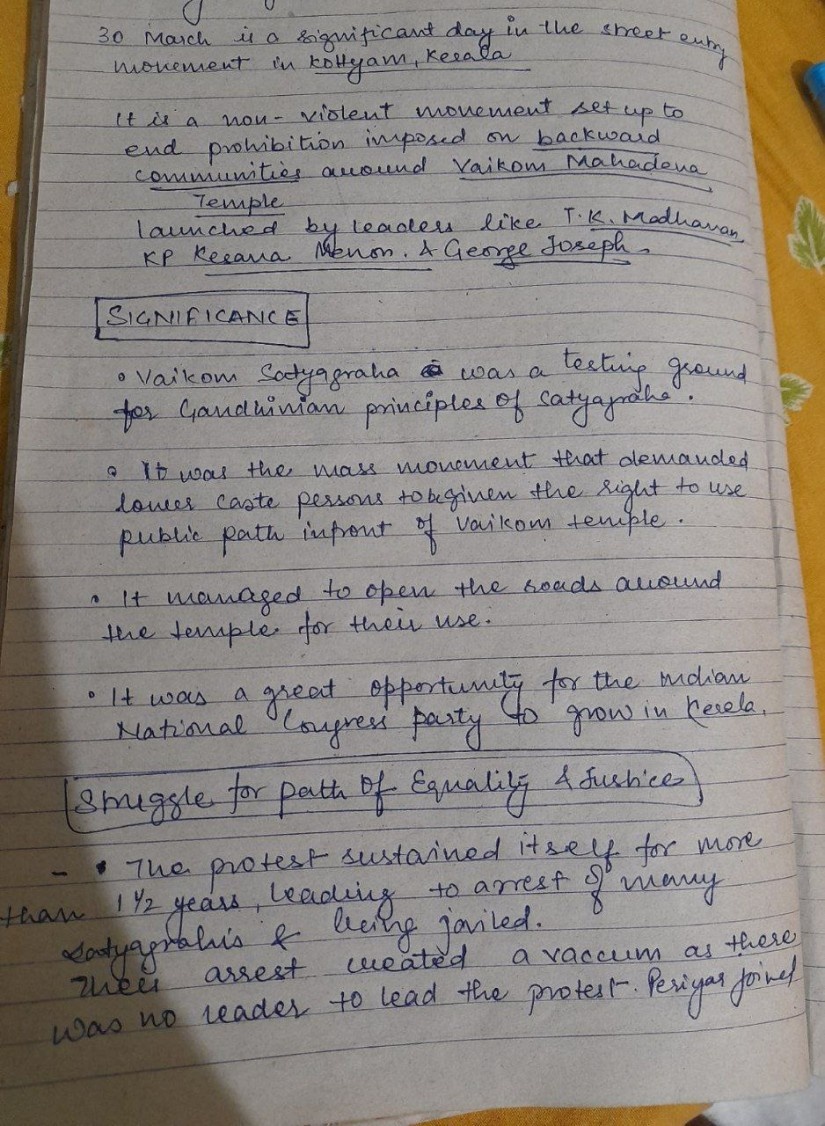 30 March is a significant day in the street entry
movement in Kottyam, Kerala
It is a non-violent movement set up to
end prohibition imposed on backward
communities around Vaikom Mahadeva
Temple
launched by leaders like T.K. Madhavan
KP Kesava Menon. & George Joseph.
SIGNIFICANCE
• Vaikom Satyagraha was a testing ground
for Gandhinian principles of Satyagraha.
• It was the mass movement that demanded
lower caste persons to be given the right to use
public path infront of Vaikom temple.
• It managed to open the roads around
the temple for their use.
• It was a great opportunity for the Indian
National Congress party to grow in Kerela.
Struggle for path Of Equality & Justice
- • The protest sustained itself for more
than 1 1/2 years, leading to arrest of many
satyagrahis & being jailed.
Their arrest created a vaccum as there
was no leader to lead the protest. Periyar joined